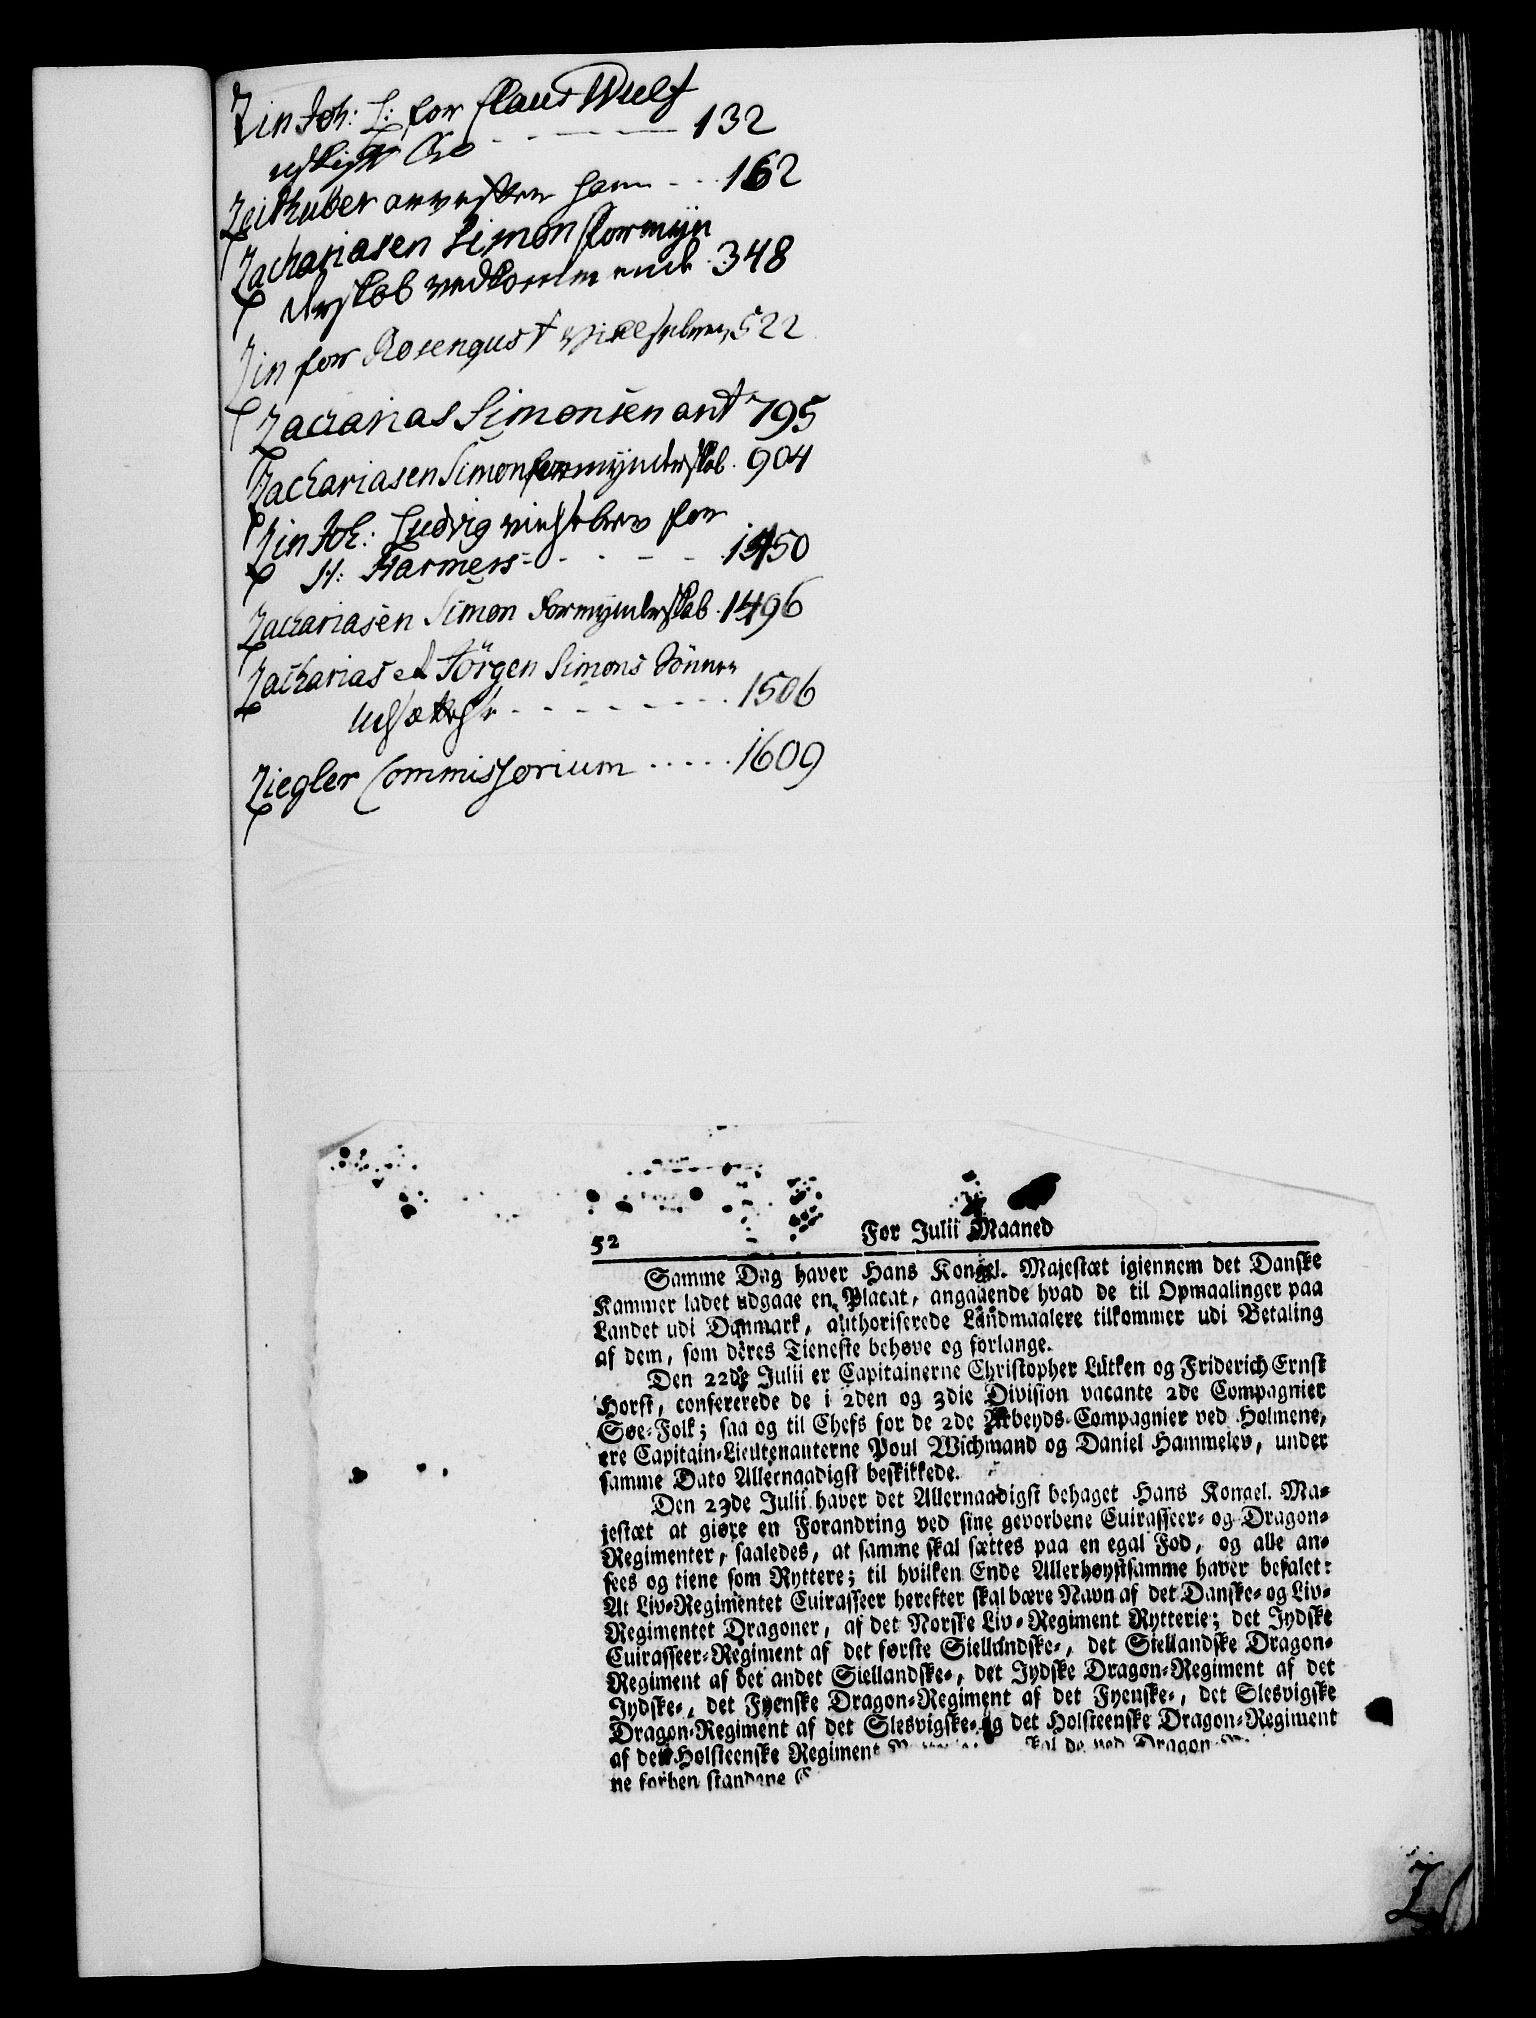 Zin Joh: L: for Claus Wulf
132
Zeithuber arresten ham - - . 162
Zachariasen Simon formyn
derskab vedkommende . 348
Zin for Rosenqust vixelbrev, 522
Zacharias Simonsen ant 795
Zachariasen Simon formynderskab . 904
Zin Joh: Ludvig vixelbrev for
H: Farmers - - - - - 1450
Zachariasen Simon formynderskab . 1496
Zacharias et Jörgen Simons Sönner
- - - - - - . 1506
Ziegler Commissorium . . . . . 1609
52 For Julii Maaned
Samme Dag haver Hans Kongel. Majestæt igiennem det Danske
Kammer ladet udgaae en Placat, angaaende hvad de til Opmaalinger paa
Landet udi Danmark, authoriserede Landmaalere tilkommer udi Betaling
af dem, som deres Tieneste behøve og forlange.
Den 22de Julii er Capitainerne Christopher Lütken og Friderich Ernst
Horst, confererede de i 2den og 3die Division vacante 2de Compagnier
Søe-Folk; saa og til Chefs for de 2de Arbeyds-Compagnier ved Holmene,
ere Capitain-Lieutenanterne Poul Wichmand og Daniel Hammelev, under
samme Dato Allernaadigst beskikkede.
Den 23de Julii haver det Allernaadigst behaget Hans Kongel. Ma-
jestæt at giøre en Forandring ved sine gevorbene Cuirasseer- og Dragon-
Regimenter, saaledes, at samme skal sættes paa en egal Fod, og alle an-
sees og tiene som Ryttere; til hvilken Ende Allerhøystsamme haver befalet:
At Liv-Regimentet Cuirasseer herefter skal bære Navn af det Danske- og Liv-
Regimentet Dragoner, af det Norske Liv-Regiment Rytterie; det Jydske
Cuirasseer-Regiment af det første Siellandske-, det Siellandske Dragon-
Regiment af det andet Siellandske-, det Jydske Dragon-Regiment af det
Jydske-, det Fyenske Dragon-Regiment af det Fyenske-, det Slesvigske
Dragon-Regiment af det Slesvigske- og det Holsteenske Dragon-Regiment
af det Holsteenske Regiment skal de ved Dragon
ne forhen standene
Z